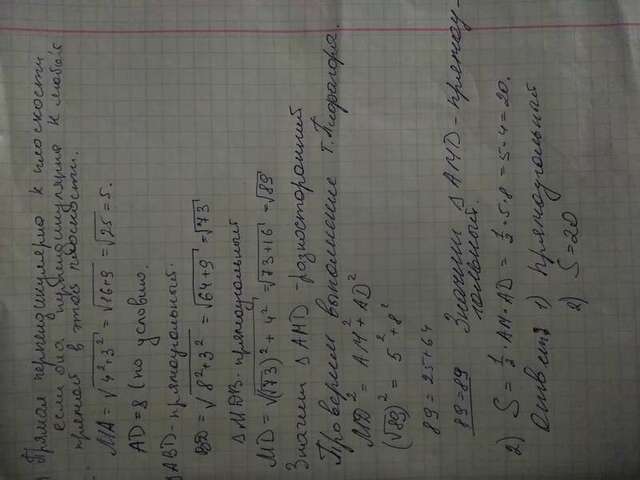 Прямая перпендикулярна к плоскости
если она перпендикулярна к любой
прямой в этой плоскости.
MA = √4²+3² = √16+9 = √25 = 5.
AD = 8 (по условию.
ABD - прямоугольный.
BD = √8²+3² = √64+9 = √73
△MDB - прямоугольный
MD = √(√73)²+4² = √73+16 = √89
Значит △AMD - разносторонний
Проверяем выполнение т. Пифагора.
MD² = AM² + AD²
(√89)² = 5² + 8²
89 = 25+64
89 = 89 Значит △AMD - прямоу-
гольный.
2) S = 1/2 AM·AD = 1/2·5·8 = 5·4 = 20.
Ответ: 1) прямоугольный
2) S = 20